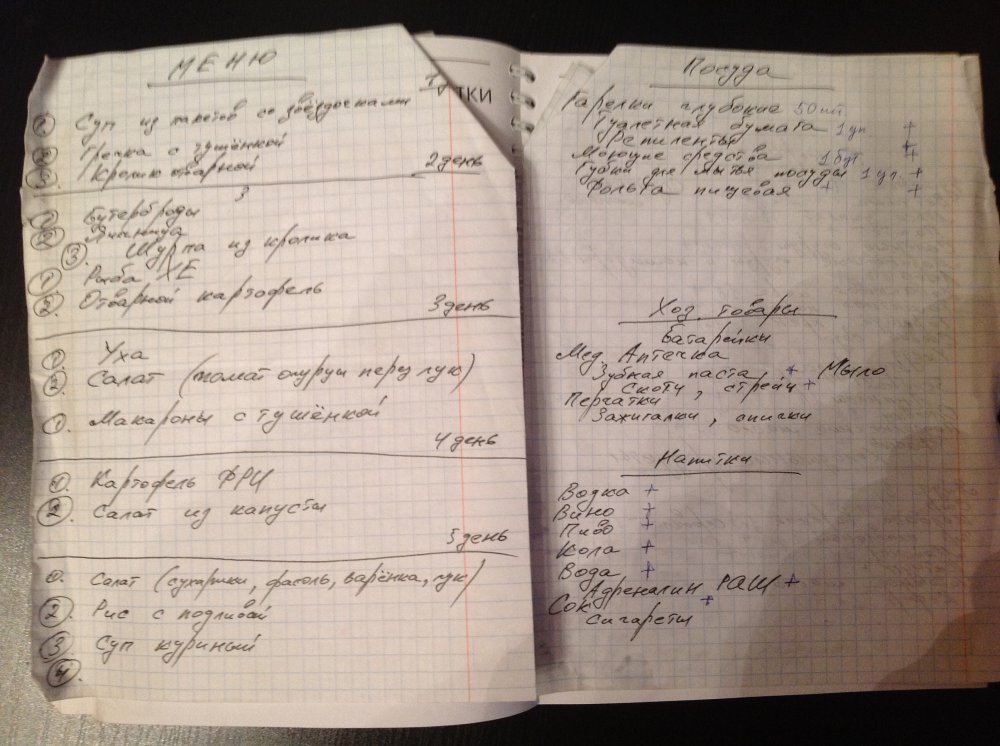 МЕНЮ
ТКИ
Суп из пакетов со звёздочками
2. Гречка с тушёнкой
Кролик отварной
2 день
3
Бутерброды
2. Яичница
3. Шурпа из кролика
1. Рыба ХЕ
2. Отварной картофель
3 день
1. Уха
2. Салат (помат огурцы перец лук)
1. Макароны с тушёнкой
4 день
1. Картофель ФРИ
2. Салат из капусты
5 день
Салат (сухарики, фасоль, варёнка, лук)
2. Рис с подливой
3. Суп куриный
4.
Посуда
Тарелки глубокие 50 шт
Туалетная бумага 1 уп +
Репиленты +
Моющие средства 1 бут +
Губки для мытья посуды 1 уп. +
Фольга пищевая + +
Хоз. товары
Батарейки
Мед. Аптечка
Зубная паста + Мыло
Скотч, стрейч +
Перчатки
Зажигалки, спички
Напитки
Водка +
Вино +
Пиво +
Кола +
Вода +
Адреналин РАШ +
Сок +
Сигареты